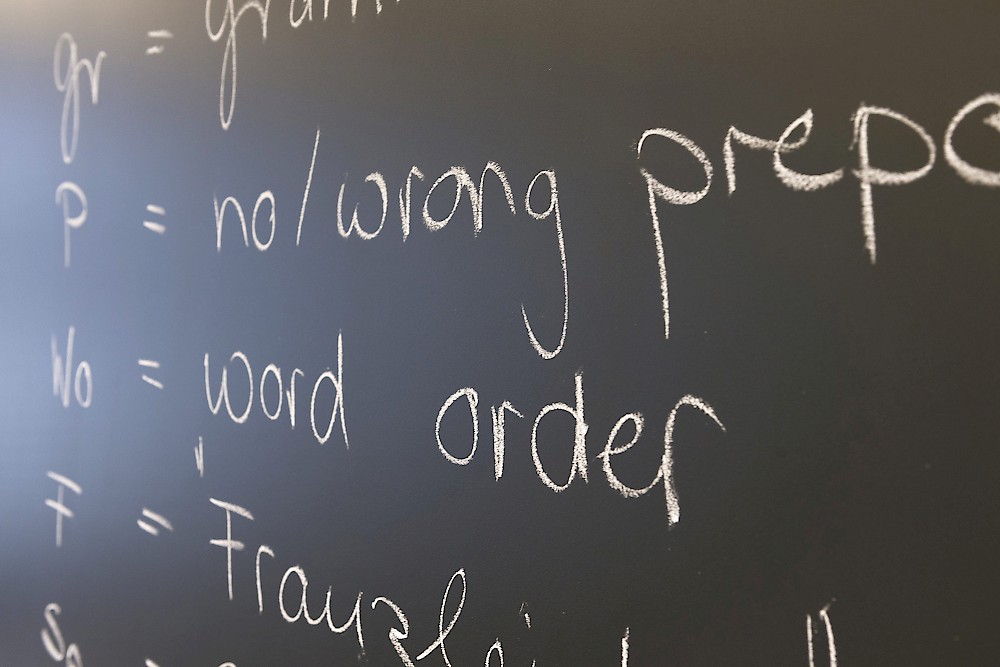 gr = gram
p = no/wrong prepo
Wo = word order
F = "Frauzlei
So =